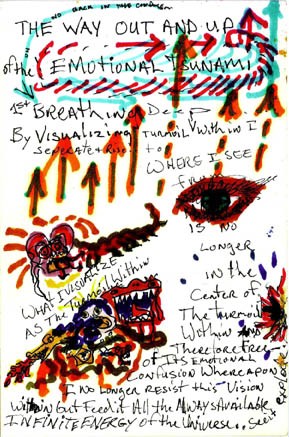 "NO BACK IN THIS CONDITION"
THE WAY OUT AND UP
of the "EMOTIONAL TSUNAMI
1st BREATHING DEEP
By VISUALIZING TURMOIL WITHIN I
SEPERATE & RISE TO
WHERE I SEE
from
IS NO
LONGER
IN the
Center of
The Turmoil
Within and
Therefore free
WHAT I VISUALIZE
AS THE Turmoil Within
of ITS EMOTIONAL
Confusion Whereapon
I no Longer resist this Vision
Within but Feed it All the Always AVAILABLE
INFINITE ENERGY of the Universe..